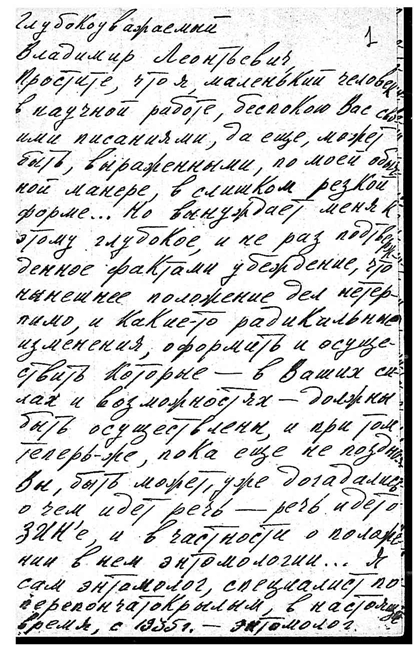 Глубокоуважаемый
1
Владимир Леонтьевич
Простите, что я, маленький человек
в научной работе, беспокою Вас сво-
ими писаниями, да еще, может
быть, выраженными, по моей обыч-
ной манере, в слишком резкой
форме... Но вынуждает меня к
этому глубокое, и не раз подтвер-
жденное фактами убеждение, что
нынешнее положение дел нетер-
пимо, и какие-то радикальные
изменения, оформить и осуще-
ствить которые — в Ваших си-
лах и возможностях — должны
быть осуществлены, и при том
теперь-же, пока еще не поздно
Вы, быть может, уже догадались
о чем идет речь — речь идет о
ЗИН'е, и в частности о положе-
нии в нем энтомологии... Я
сам энтомолог, специалист по
перепончатокрылым, в настоящее
время, с 1935г. — энтомолог.